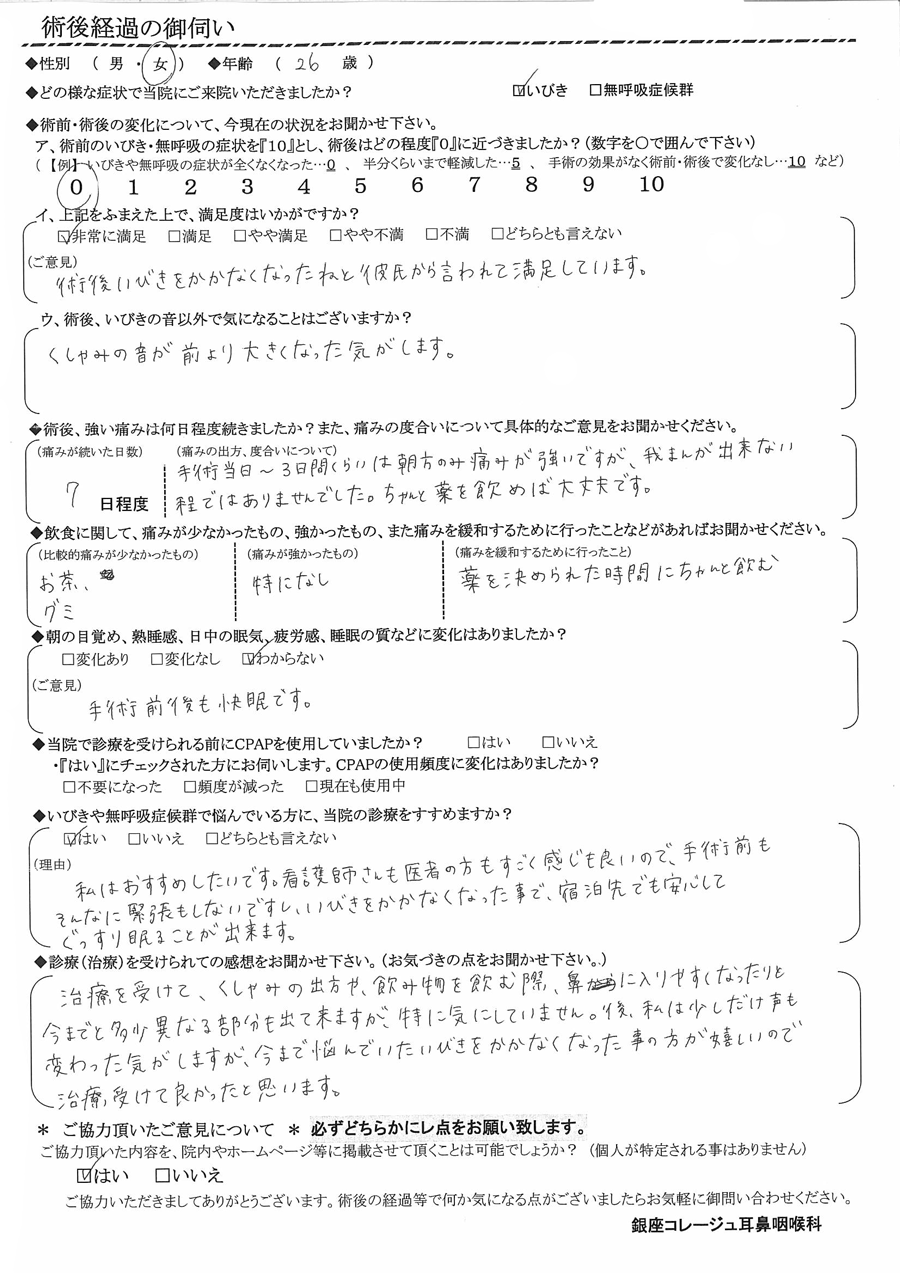 術後経過の御伺い
◆性別 ( 男 ・ 女 ) ◆年齢 ( 26 歳 )
◆どの様な症状で当院にご来院いただきましたか? ☑いびき □無呼吸症候群
◆術前・術後の変化について、今現在の状況をお聞かせ下さい。
ア、術前のいびき・無呼吸の症状を『10』とし、術後はどの程度『0』に近づきましたか?(数字を○で囲んで下さい)
(【例】いびきや無呼吸の症状が全くなくなった…0 、 半分くらいまで軽減した…5 、 手術の効果がなく術前・術後で変化なし…10 など)
0 1 2 3 4 5 6 7 8 9 10
イ、上記をふまえた上で、満足度はいかがですか?
☑非常に満足 □満足 □やや満足 □やや不満 □不満 □どちらとも言えない
(ご意見)
術後いびきをかかなくなったねと彼氏から言われて満足しています。
ウ、術後、いびきの音以外で気になることはございますか?
くしゃみの音が前より大きくなった気がします。
◆術後、強い痛みは何日程度続きましたか?また、痛みの度合いについて具体的なご意見をお聞かせください。
(痛みが続いた日数) (痛みの出方、度合いについて)
手術当日~3日間くらいは朝方のみ痛みが強いですが、我まんが出来ない
7 日程度 程ではありませんでした。ちゃんと薬を飲めば大丈夫です。
◆飲食に関して、痛みが少なかったもの、強かったもの、また痛みを緩和するために行ったことなどがあればお聞かせください。
(比較的痛みが少なかったもの) (痛みが強かったもの) (痛みを緩和するために行ったこと)
お茶、 特になし 薬を決められた時間にちゃんと飲む
グミ
◆朝の目覚め、熟睡感、日中の眠気、疲労感、睡眠の質などに変化はありましたか?
□変化あり □変化なし ☑わからない
(ご意見)
手術前後も快眠です。
◆当院で診療を受けられる前にCPAPを使用していましたか? □はい □いいえ
・『はい』にチェックされた方にお伺いします。CPAPの使用頻度に変化はありましたか?
□不要になった □頻度が減った □現在も使用中
◆いびきや無呼吸症候群で悩んでいる方に、当院の診療をすすめますか?
☑はい □いいえ □どちらとも言えない
(理由)
私はおすすめしたいです。看護師さんも医者の方もすごく感じも良いので、手術前も
そんなに緊張もしないですし、いびきをかかなくなった事で、宿泊先でも安心して
ぐっすり眠ることが出来ます。
◆診療(治療)を受けられての感想をお聞かせ下さい。(お気づきの点をお聞かせ下さい。)
治療を受けて、くしゃみの出方や、飲み物を飲む際、鼻に入りやすくなったりと
今までと多少異なる部分も出て来ますが、特に気にしていません。後、私は少しだけ声も
変わった気がしますが、今まで悩んでいたいびきをかかなくなった事の方が嬉しいので
治療受けて良かったと思います。
* ご協力頂いたご意見について * 必ずどちらかにレ点をお願い致します。
ご協力頂いた内容を、院内やホームページ等に掲載させて頂くことは可能でしょうか? (個人が特定される事はありません)
☑はい □いいえ
ご協力いただきましてありがとうございます。術後の経過等で何か気になる点がございましたらお気軽に御問い合わせください。
銀座コレージュ耳鼻咽喉科